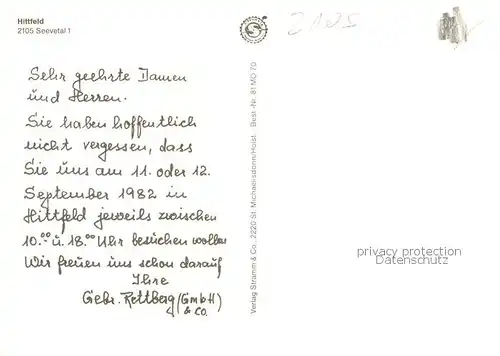 Hittfeld
2105 Seevetal 1
Sehr geehrte Damen
und Herren.
Sie haben hoffentlich
nicht vergessen, dass
Sie uns am 11. oder 12.
September 1982 in
Hittfeld jeweils zwischen
10.00 u. 18.00 Uhr besuchen wollen
Wir freuen uns schon darauf
Ihre
Gebr. Rettberg (GmbH
& CO.)
Verlag Stramm & Co., 2220 St. Michaelisdonn/Holst. Best.-Nr. 81 MO 70
2105
privacy protection
Datenschutz